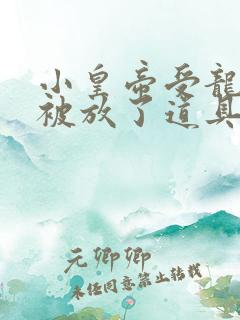 小皇帝受龍
被放了道具
元卿卿
未经同意禁止转载